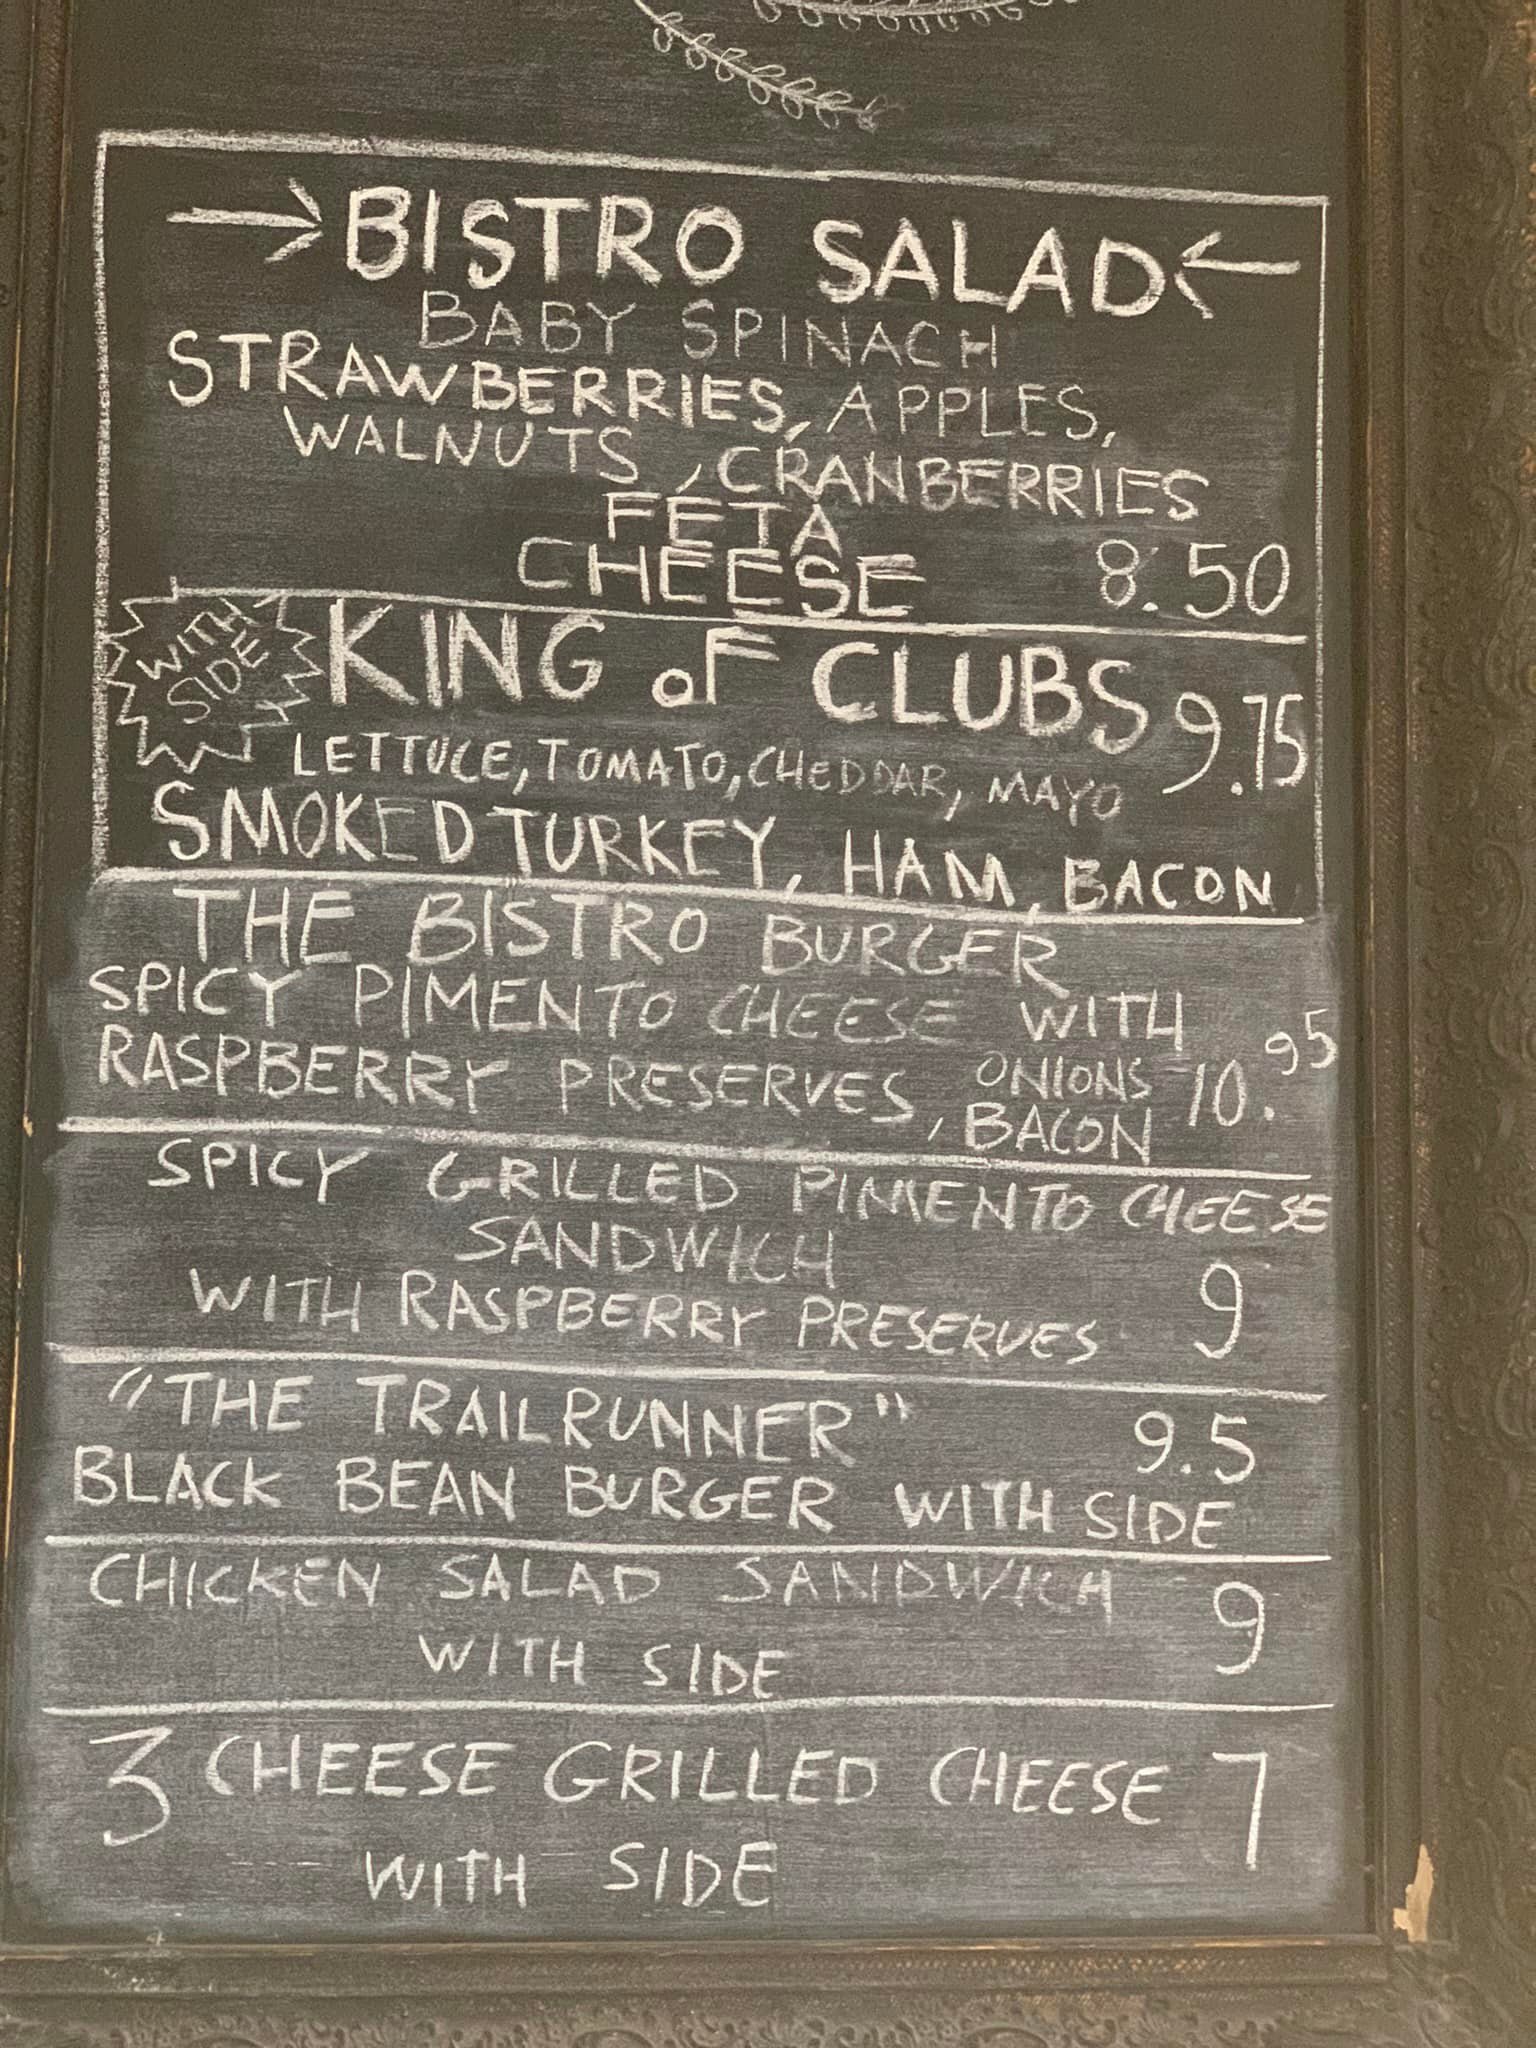 BISTRO SALAD
BABY SPINACH
STRAWBERRIES, APPLES,
WALNUTS, CRANBERRIES
FETA
CHEESE 8.50
WITH
SIDE
KING OF CLUBS 9.75
LETTUCE, TOMATO, CHEDDAR, MAYO
SMOKED TURKEY, HAM, BACON
THE BISTRO BURGER
SPICY PIMENTO CHEESE WITH
RASPBERRY PRESERVES, ONIONS 10.95
BACON
SPICY GRILLED PIMENTO CHEESE
SANDWICH
WITH RASPBERRY PRESERVES 9
"THE TRAILRUNNER" 9.5
BLACK BEAN BURGER WITH SIDE
CHICKEN SALAD SANDWICH 9
WITH SIDE
3 CHEESE GRILLED CHEESE 7
WITH SIDE